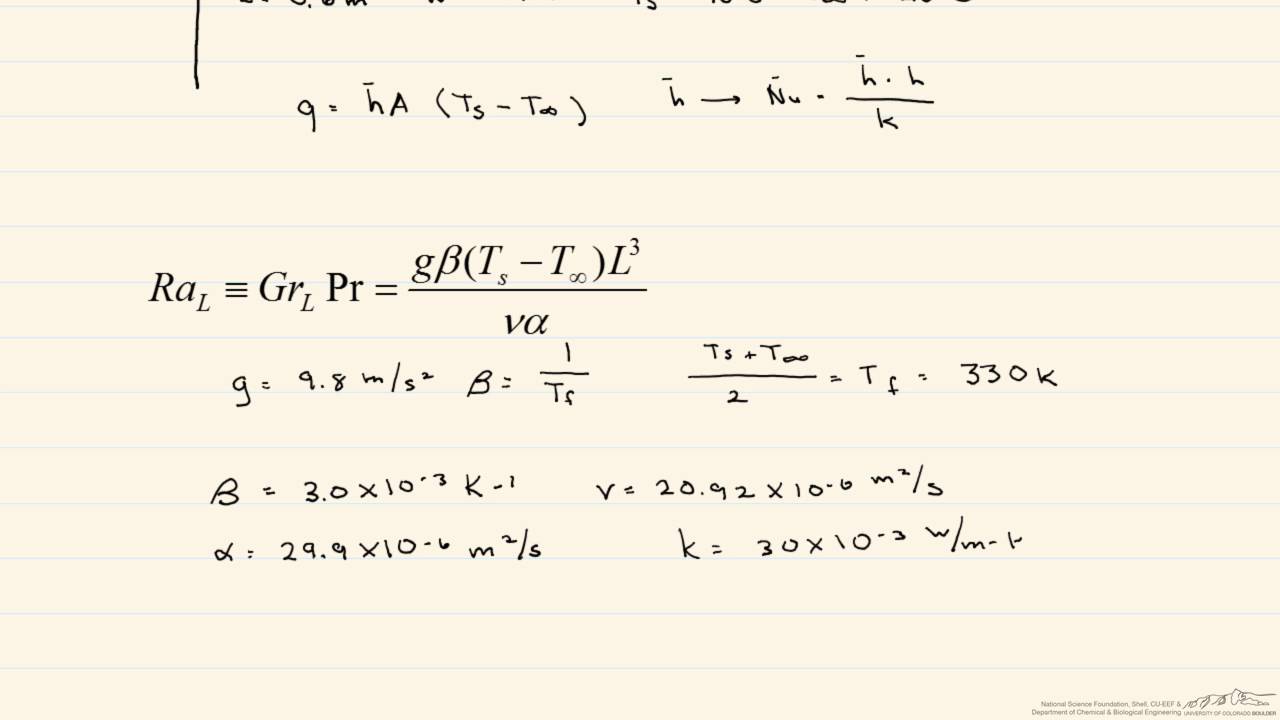 q = h̄A (Ts - T∞) h̄ → N̄u = h̄ · h / k
Ra_L ≡ Gr_L Pr = gβ(T_s − T_∞)L³ / να
g = 9.8 m/s² β = 1/Tf Ts + T∞ / 2 = Tf = 330K
β = 3.0 × 10⁻³ K-1 ν = 20.92 × 10⁻⁶ m²/s
α = 29.9 × 10⁻⁶ m²/s k = 30 × 10⁻³ W/m-K
National Science Foundation, Shell, CU-EEF &
Department of Chemical & Biological Engineering UNIVERSITY OF COLORADO BOULDER